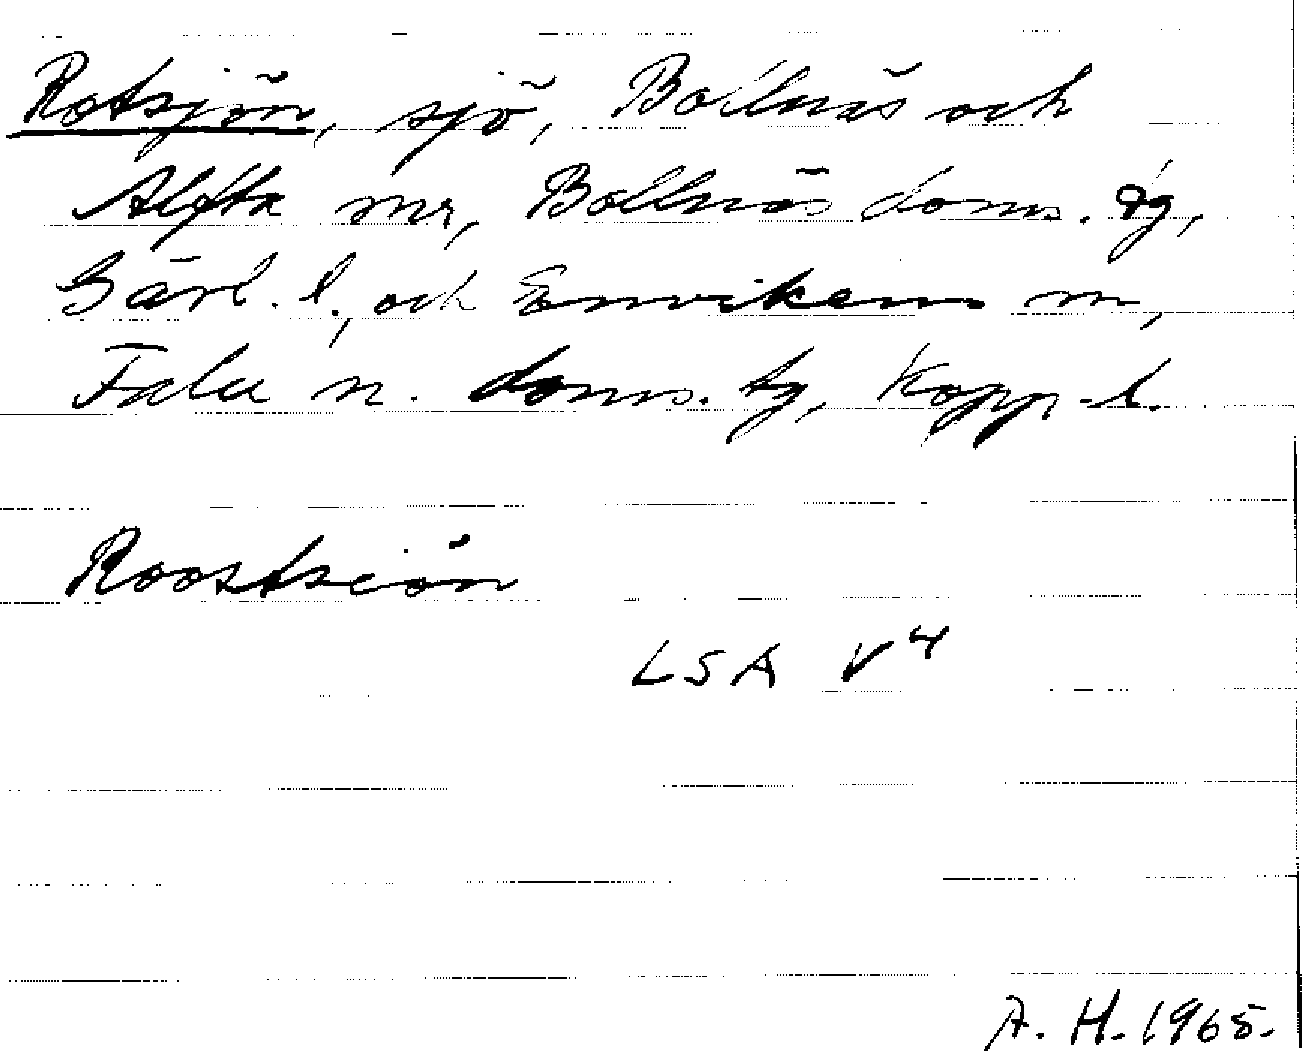 Rotsjön, sjö, Bollnäs och
Alfta snr, Bollnäs doms. tg,
Gävl. l., och Envikens sn,
Falu n. doms. tg, Kopp. l.
Roostsiön
LSA V4
A. H. 1965.